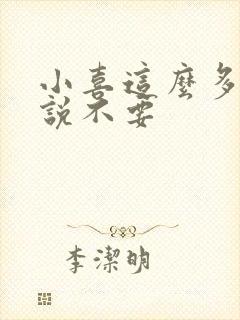 小喜這麼多
說不要
李潔明